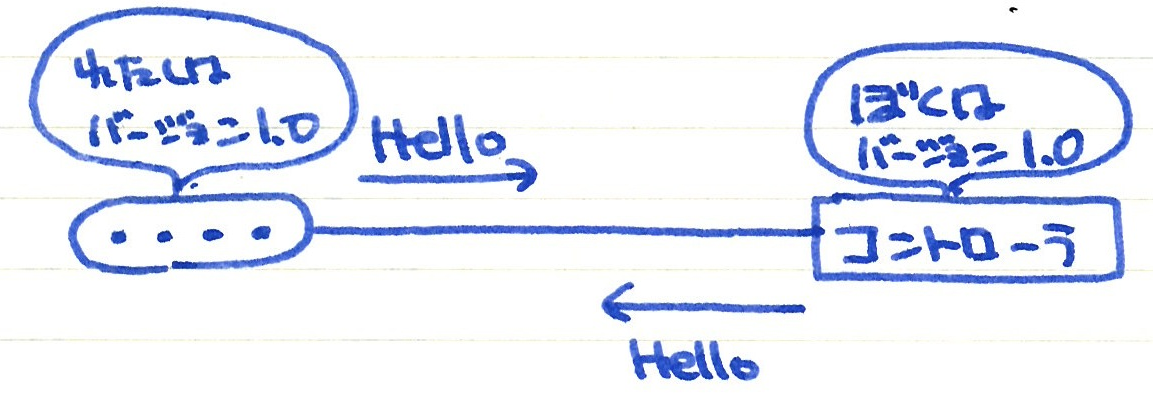 わたしは
バージョン1.0
Hello
ぼくは
バージョン1.0
コントローラ
Hello